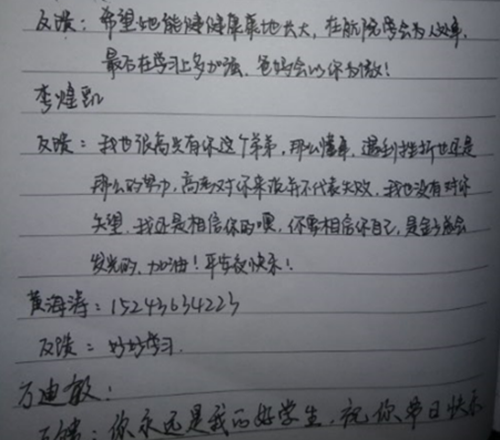 反馈：希望他能健健康康地长大，在航院学会为人处事，
最后在学习上多加强，爸妈会以你为傲！
李煌凯
反馈：我也很高兴有你这个弟弟，那么懂事，遇到挫折也还是
那么的努力，高考对你来说并不代表失败，我也没有对你
失望，我还是相信你的噢，你要相信你自己，是金子总会
发光的，加油！平安夜快乐！
黄海涛：15243634223
反馈：好好学习.
万迪敏：
你永远是我的好学生，祝你节日快乐